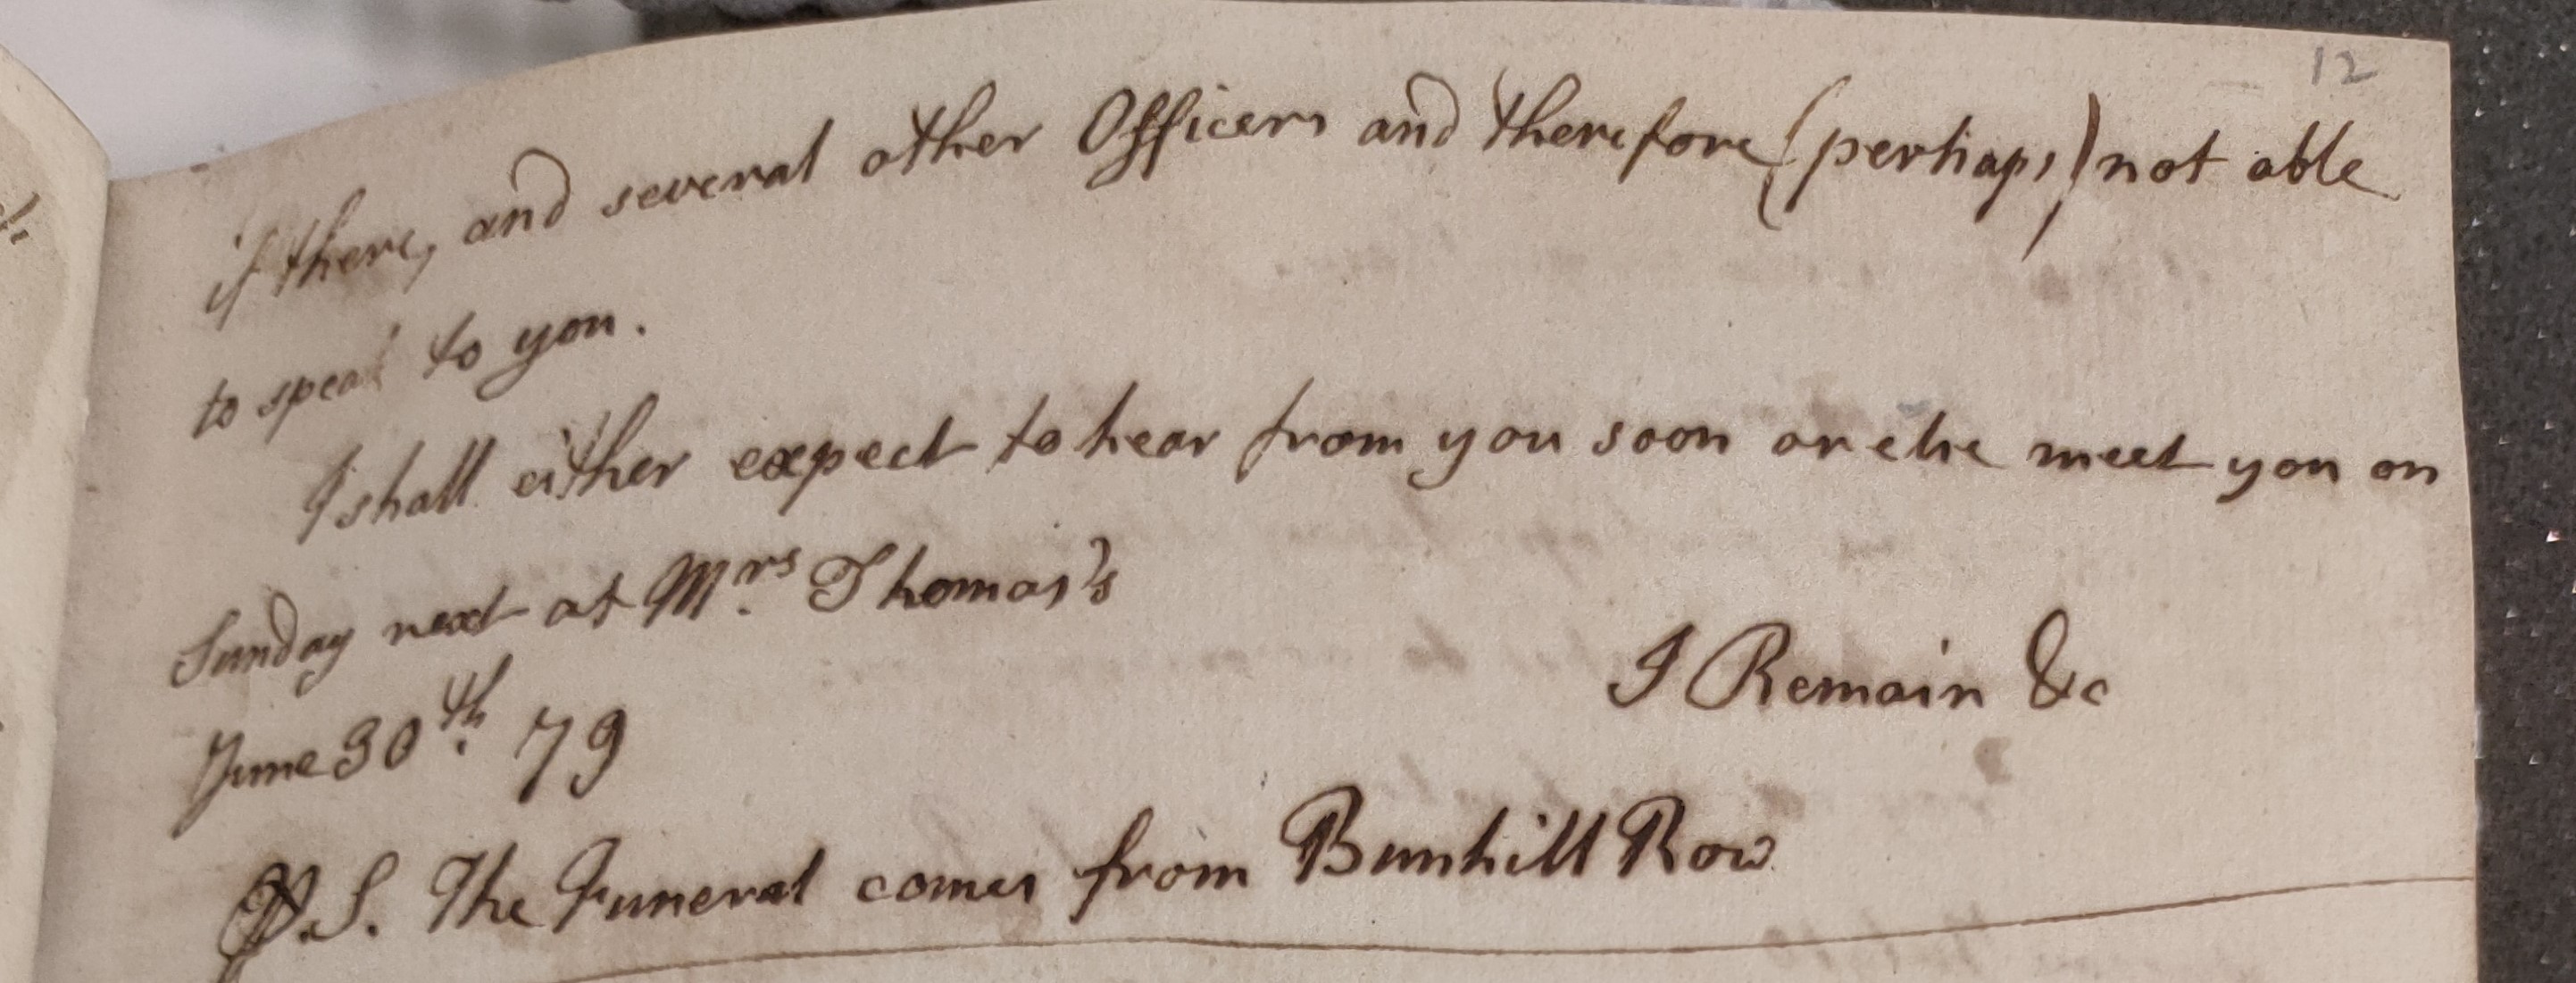 12
if there, and several other Officers and therefore (perhaps) not able
to speak to you.
I shall either expect to hear from you soon or else meet you on
Sunday next at Mrs. Thomas's
I Remain &c
June 30th. 79
P.S. The Funeral comes from Bunhill Row